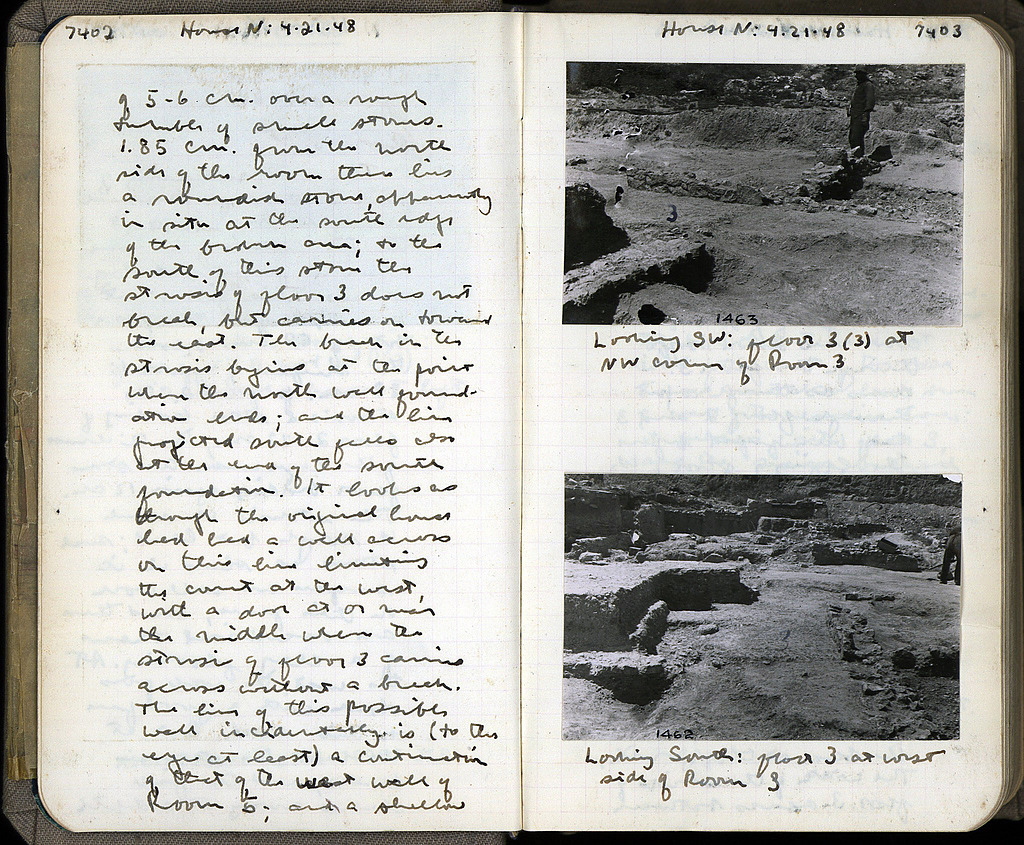 7402 House N: 4.21.48
of 5-6 cm. over a rough
tumble of small stones.
1.85 cm. from the north
side of the room there lies
a roundish stone, apparently
in situ at the south edge
of the broken area; to the
south of this stone the
strosis of floor 3 does not
break, but carries on toward
the east. The break in the
strosis begins at the point
where the north wall found-
ation ends; and the line
projected south falls also
at the end of the south
foundation. It looks as
though the original house
had had a wall across
on this line limiting
the court at the west,
with a door at or near
the middle where the
strosis of floor 3 carries
across without a break.
The line of this possible
wall incidentally is (to the
eye at least) a continuation
of that of the west wall of
Room 5; and a shallow
House N: 4.21.48 7403
3
1463
Looking SW: floor 3 (3) at
NW corner of Room 3
1462
Looking South: floor 3 at west
side of Room 3